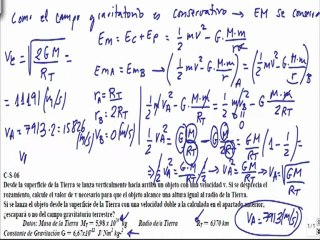 Como el campo gravitatorio es conservativo → EM se conserva
Em = Ec + Ep = 1/2 mv² - G · M·m/r
EmA = EmB → 1/2 mv² - G · M·m/r )A = 1/2 mv² - G · M·m/r )B
Ve = √(2GM/RT)
= 11191 (m/s)
rA = RT
rB = 2RT
VB = 0 (m/s)
1/2 m VA² - G · M·m/RT = - G · M·m/2RT
VA = 7913 · 2 = 15826 (m/s)
1/2 VA² = G M/RT - G M/2RT = GM/RT (1 - 1/2) =
⇒ 1/2 VA² = GM/2RT → VA² = GM/RT → VA = √(GM/RT)
VA = 7913 (m/s)
C-S-06
Desde la superficie de la Tierra se lanza verticalmente hacia arriba un objeto con una velocidad v. Si se desprecia el
rozamiento, calcule el valor de v necesario para que el objeto alcance una altura igual al radio de la Tierra.
Si se lanza el objeto desde la superficie de la Tierra con una velocidad doble a la calculada en el apartado anterior,
¿escapará o no del campo gravitatorio terrestre?
Datos: Masa de la Tierra MT = 5,98 x 10²⁴ kg Radio de la Tierra RT = 6370 km
Constante de Gravitación G = 6,67x10⁻¹¹ N m² kg⁻²
1/1